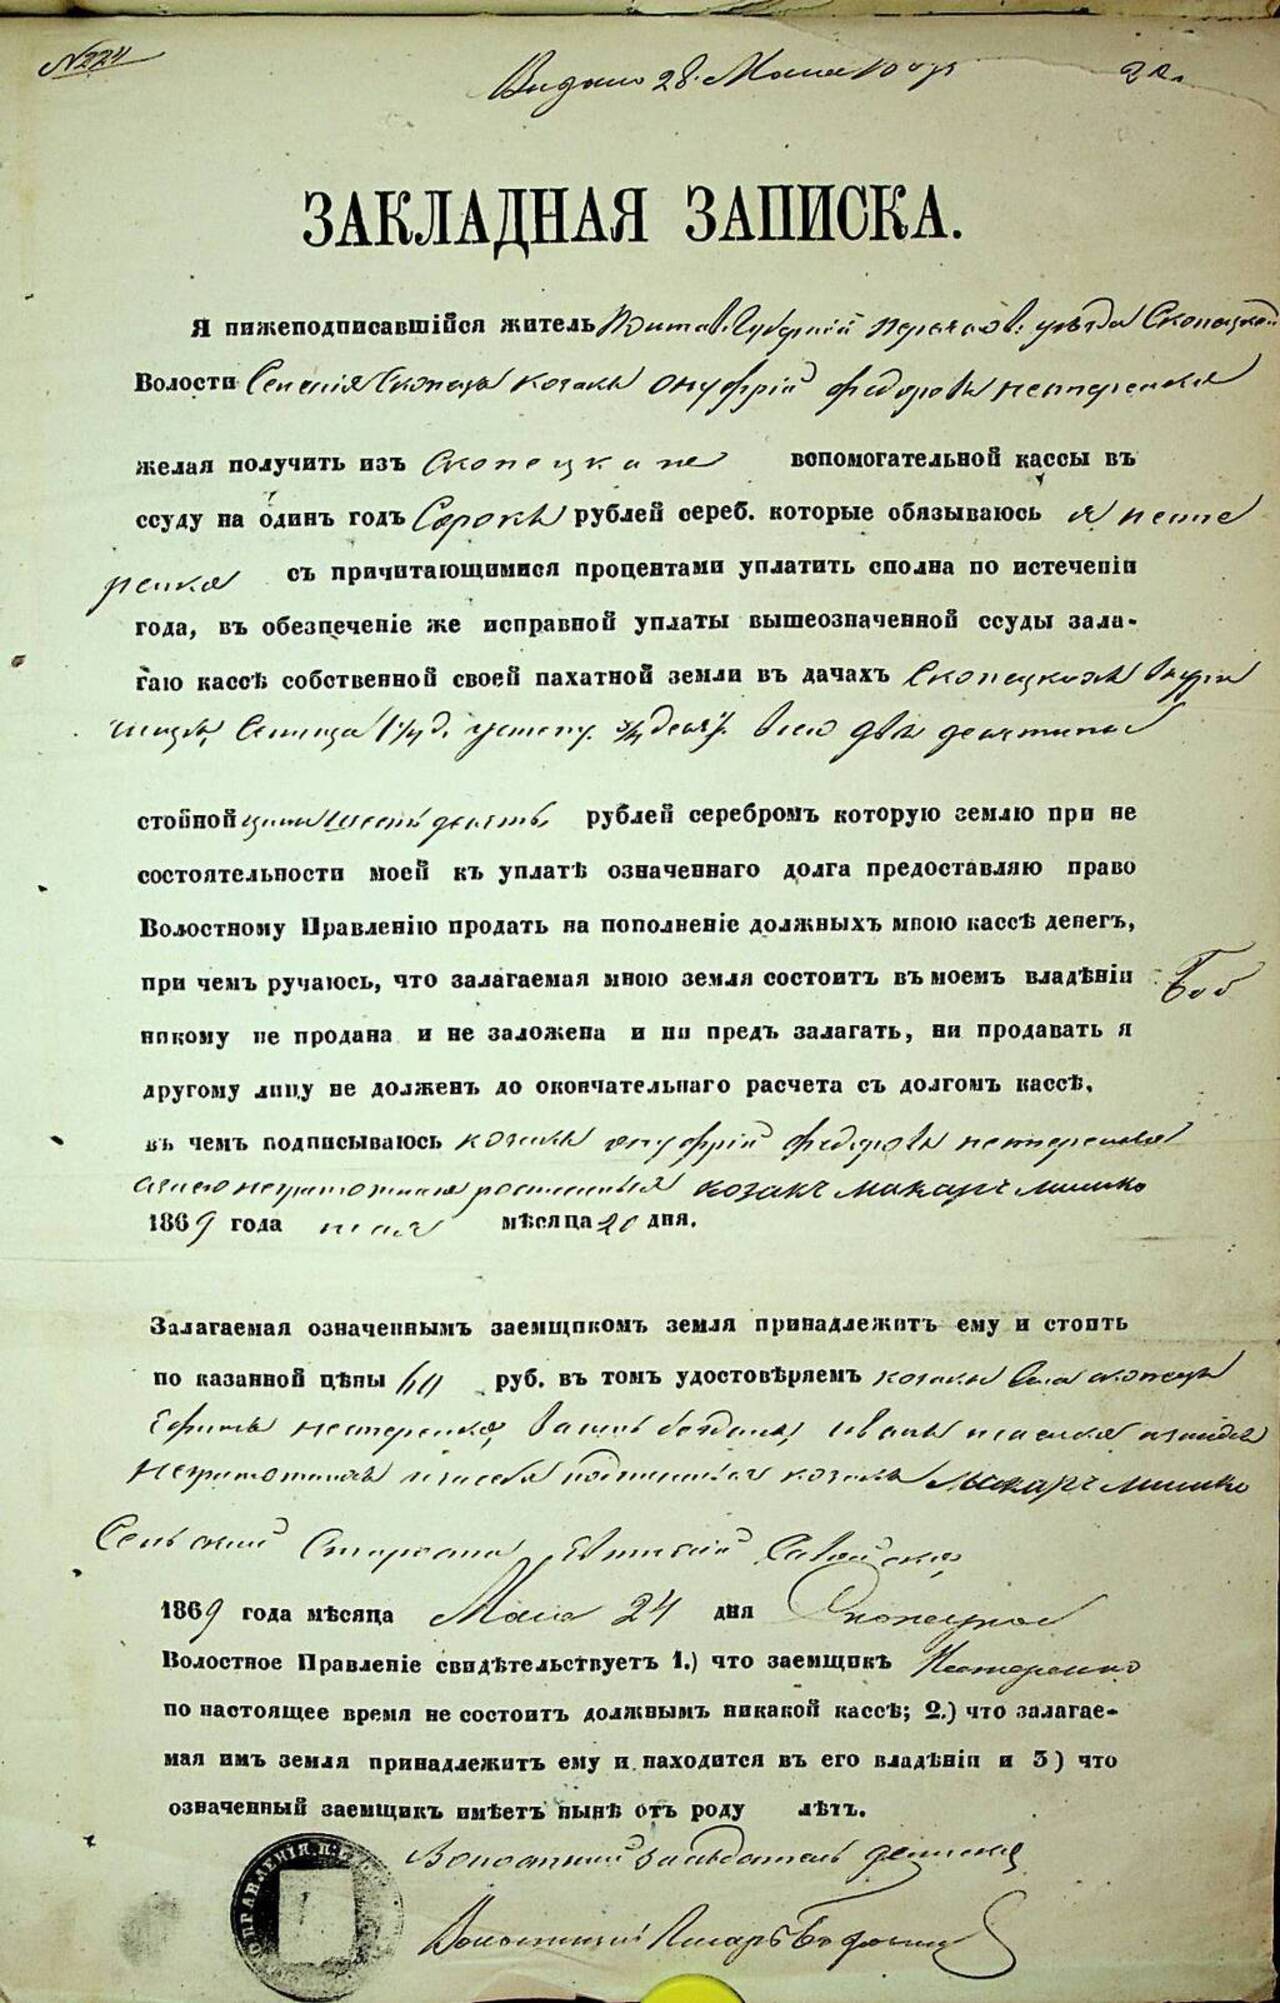 №224
Видано 28 Мая
ЗАКЛАДНАЯ ЗАПИСКА.
Я нижеподписавшійся житель Полтав. Губерній уѣзда Скопецкой
Волости Селенія Скопецъ козакъ Онуфрій Федоровъ Нестеренко
желая получить изъ Скопецкаго вспомогательной кассы въ
ссуду на одинъ годъ Сорокъ рублей сереб. которые обязываюсь я Несте
ренко съ причитающимися процентами уплатить сполна по истеченіи
года, въ обезпеченіе же исправной уплаты вышеозначенной ссуды зала-
гаю кассѣ собственной своей пахатной земли въ дачахъ Скопецкихъ
1¼ д. ¾ десят. всего двѣ десятины
стойной цены шесть десятъ рублей серебромъ которую землю при не
состоятельности моей къ уплатѣ означеннаго долга предоставляю право
Волостному Правленію продать на пополненіе должныхъ мною кассѣ денегъ,
при чемъ ручаюсь, что залагаемая мною земля состоитъ въ моемъ владѣніи
никому не продана и не заложена и ни предъ залагать, ни продавать я
другому лицу не долженъ до окончательнаго расчета съ долгомъ кассѣ,
въ чемъ подписываюсь козакъ Онуфрій Федоровъ Нестеренко
а за его неграмотного росписался козакъ Макаръ Милько
1869 года мая мѣсяца 20 дня.
Залагаемая означеннымъ заемщикомъ земля принадлежитъ ему и стоитъ
по казанной цѣны 60 руб. въ томъ удостовѣряемъ козаки села Скопецъ
Ефимъ Нестеренко, Иванъ а за ихъ
неграмотныхъ и за себя подписался козакъ Макаръ Милько
Сельский Староста Евтихий
1869 года мѣсяца Мая 24 дня Скопецкое
Волостное Правленіе свидѣтельствуетъ 1.) что заемщикъ Нестеренко
по настоящее время не состоитъ должнымъ никакой кассѣ; 2.) что залагае-
мая имъ земля принадлежитъ ему и находится въ его владѣніи и 3) что
означенный заемщикъ имѣетъ нынѣ отъ роду лѣтъ.
Волостний
Волостний Писарь